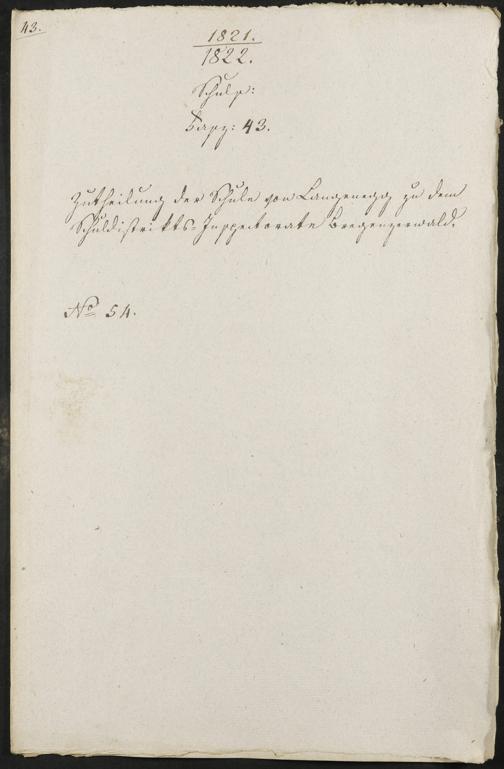 43.
1821.
1822.
Schule:
Fasz: 43.
Zutheilung der Schule von Langenegg zu dem
Schuldistrikts-Inspectorate Bregenzerwald.
No 54.